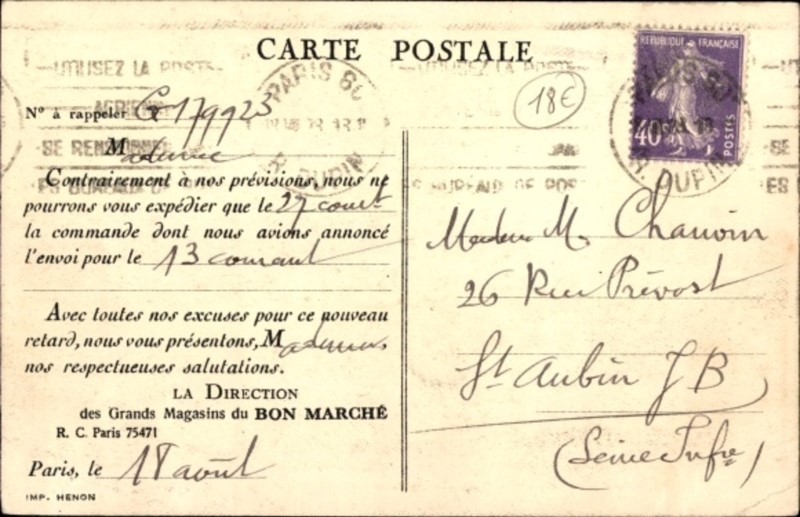 CARTE POSTALE
18€
RÉPUBLIQUE FRANÇAISE
40c
POSTES
UTILISEZ LA POSTE
PARIS 80
R. DUPIN
PARIS 80
R. DUPIN
N° à rappeler G 179923
Madame
Contrairement à nos prévisions, nous ne
pourrons vous expédier que le 27 court
la commande dont nous avions annoncé
l'envoi pour le 13 courant
Avec toutes nos excuses pour ce nouveau
retard, nous vous présentons, Madame
nos respectueuses salutations.
LA DIRECTION
des Grands Magasins du BON MARCHÉ
R. C. Paris 75471
Paris, le 18 août
IMP. HENON
Madame M. Chauvin
26 Rue Prévost
St Aubin J B
(Seine Infre)